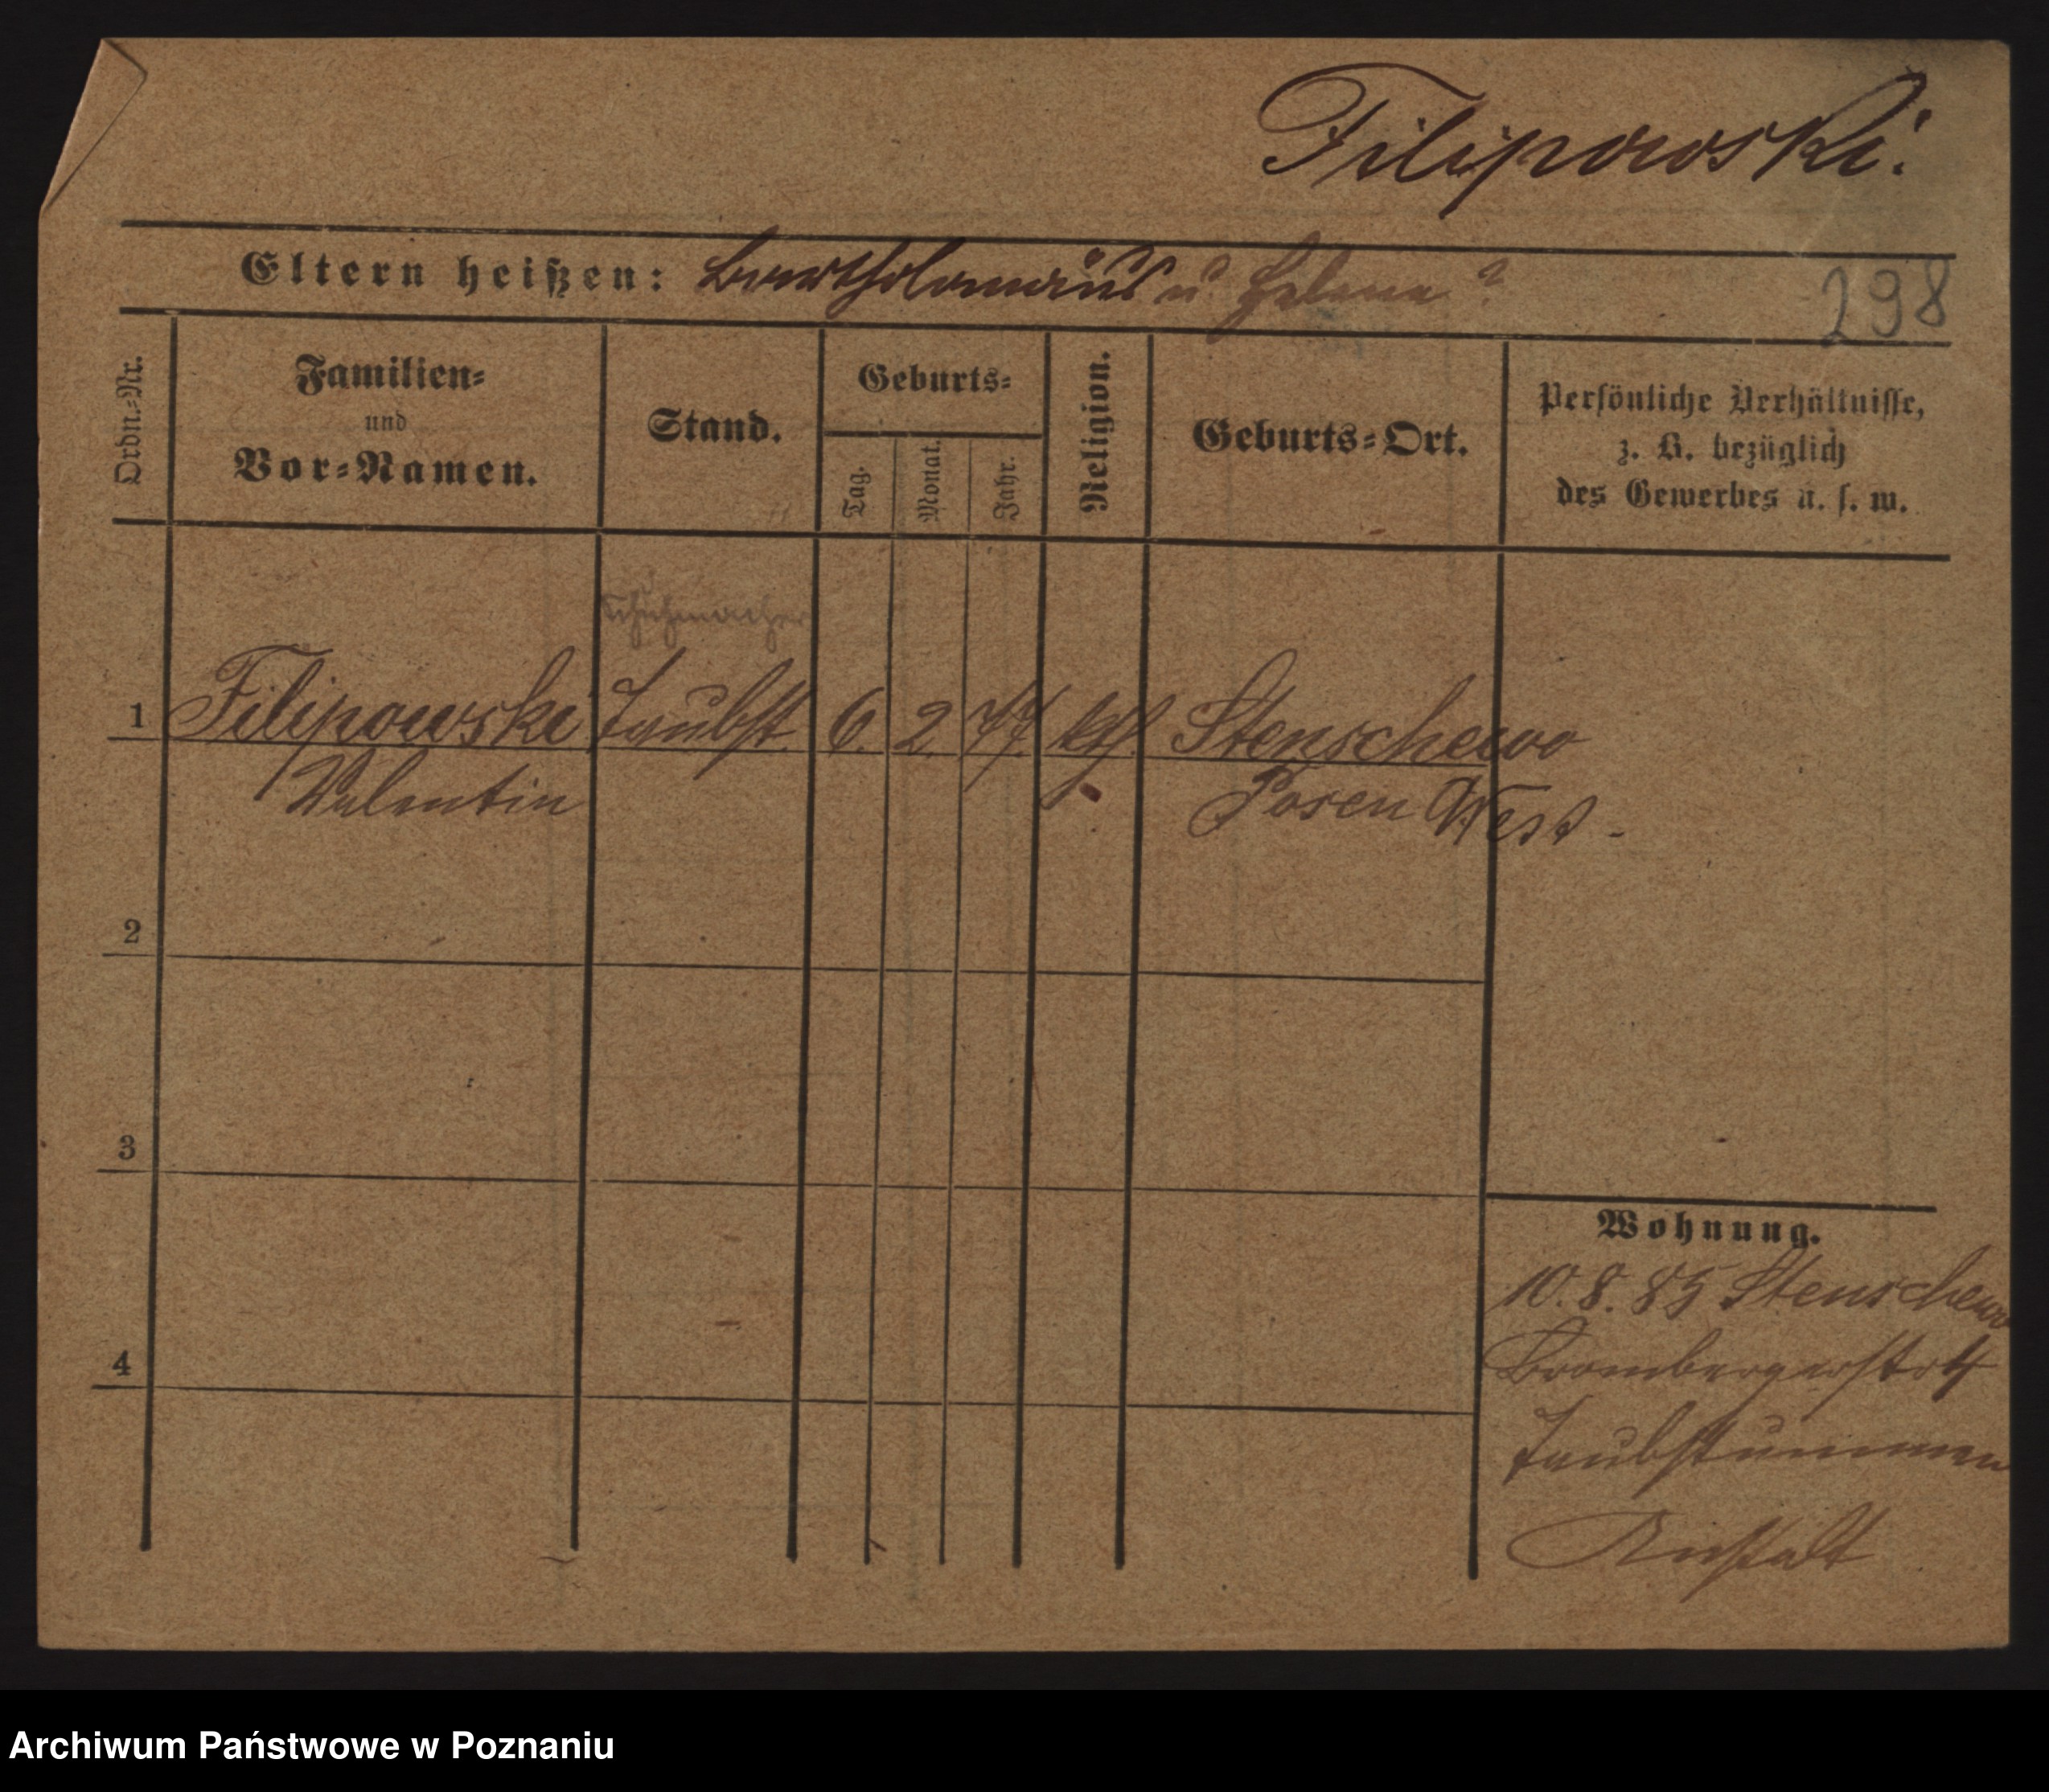 Filipowski.
Eltern heißen: Bartholomäus u. Helene ?
298
Ordn.-Nr.
Familien-
und
Vor-Namen.
Stand.
Geburts-
Tag.
Monat.
Jahr.
Religion.
Geburts-Ort.
Persönliche Verhältnisse,
z. B. bezüglich
des Gewerbes u. s. w.
Schuhmacher
1 Filipowski Taubst. 6. 2. 77. kth. Stenschewo
Valentin Posen West-
2
3
4
Wohnung.
10. 8. 85 Stenschewo
Brombergerstr 4
Taubstummen
Anstalt
Archiwum Państwowe w Poznaniu